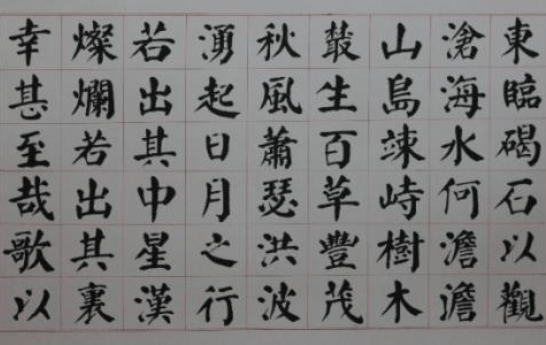 東臨碣石以觀
滄海水何澹澹
山島竦峙樹木
叢生百草豐茂
秋風蕭瑟洪波
湧起日月之行
若出其中星漢
燦爛若出其裏
幸甚至哉歌以